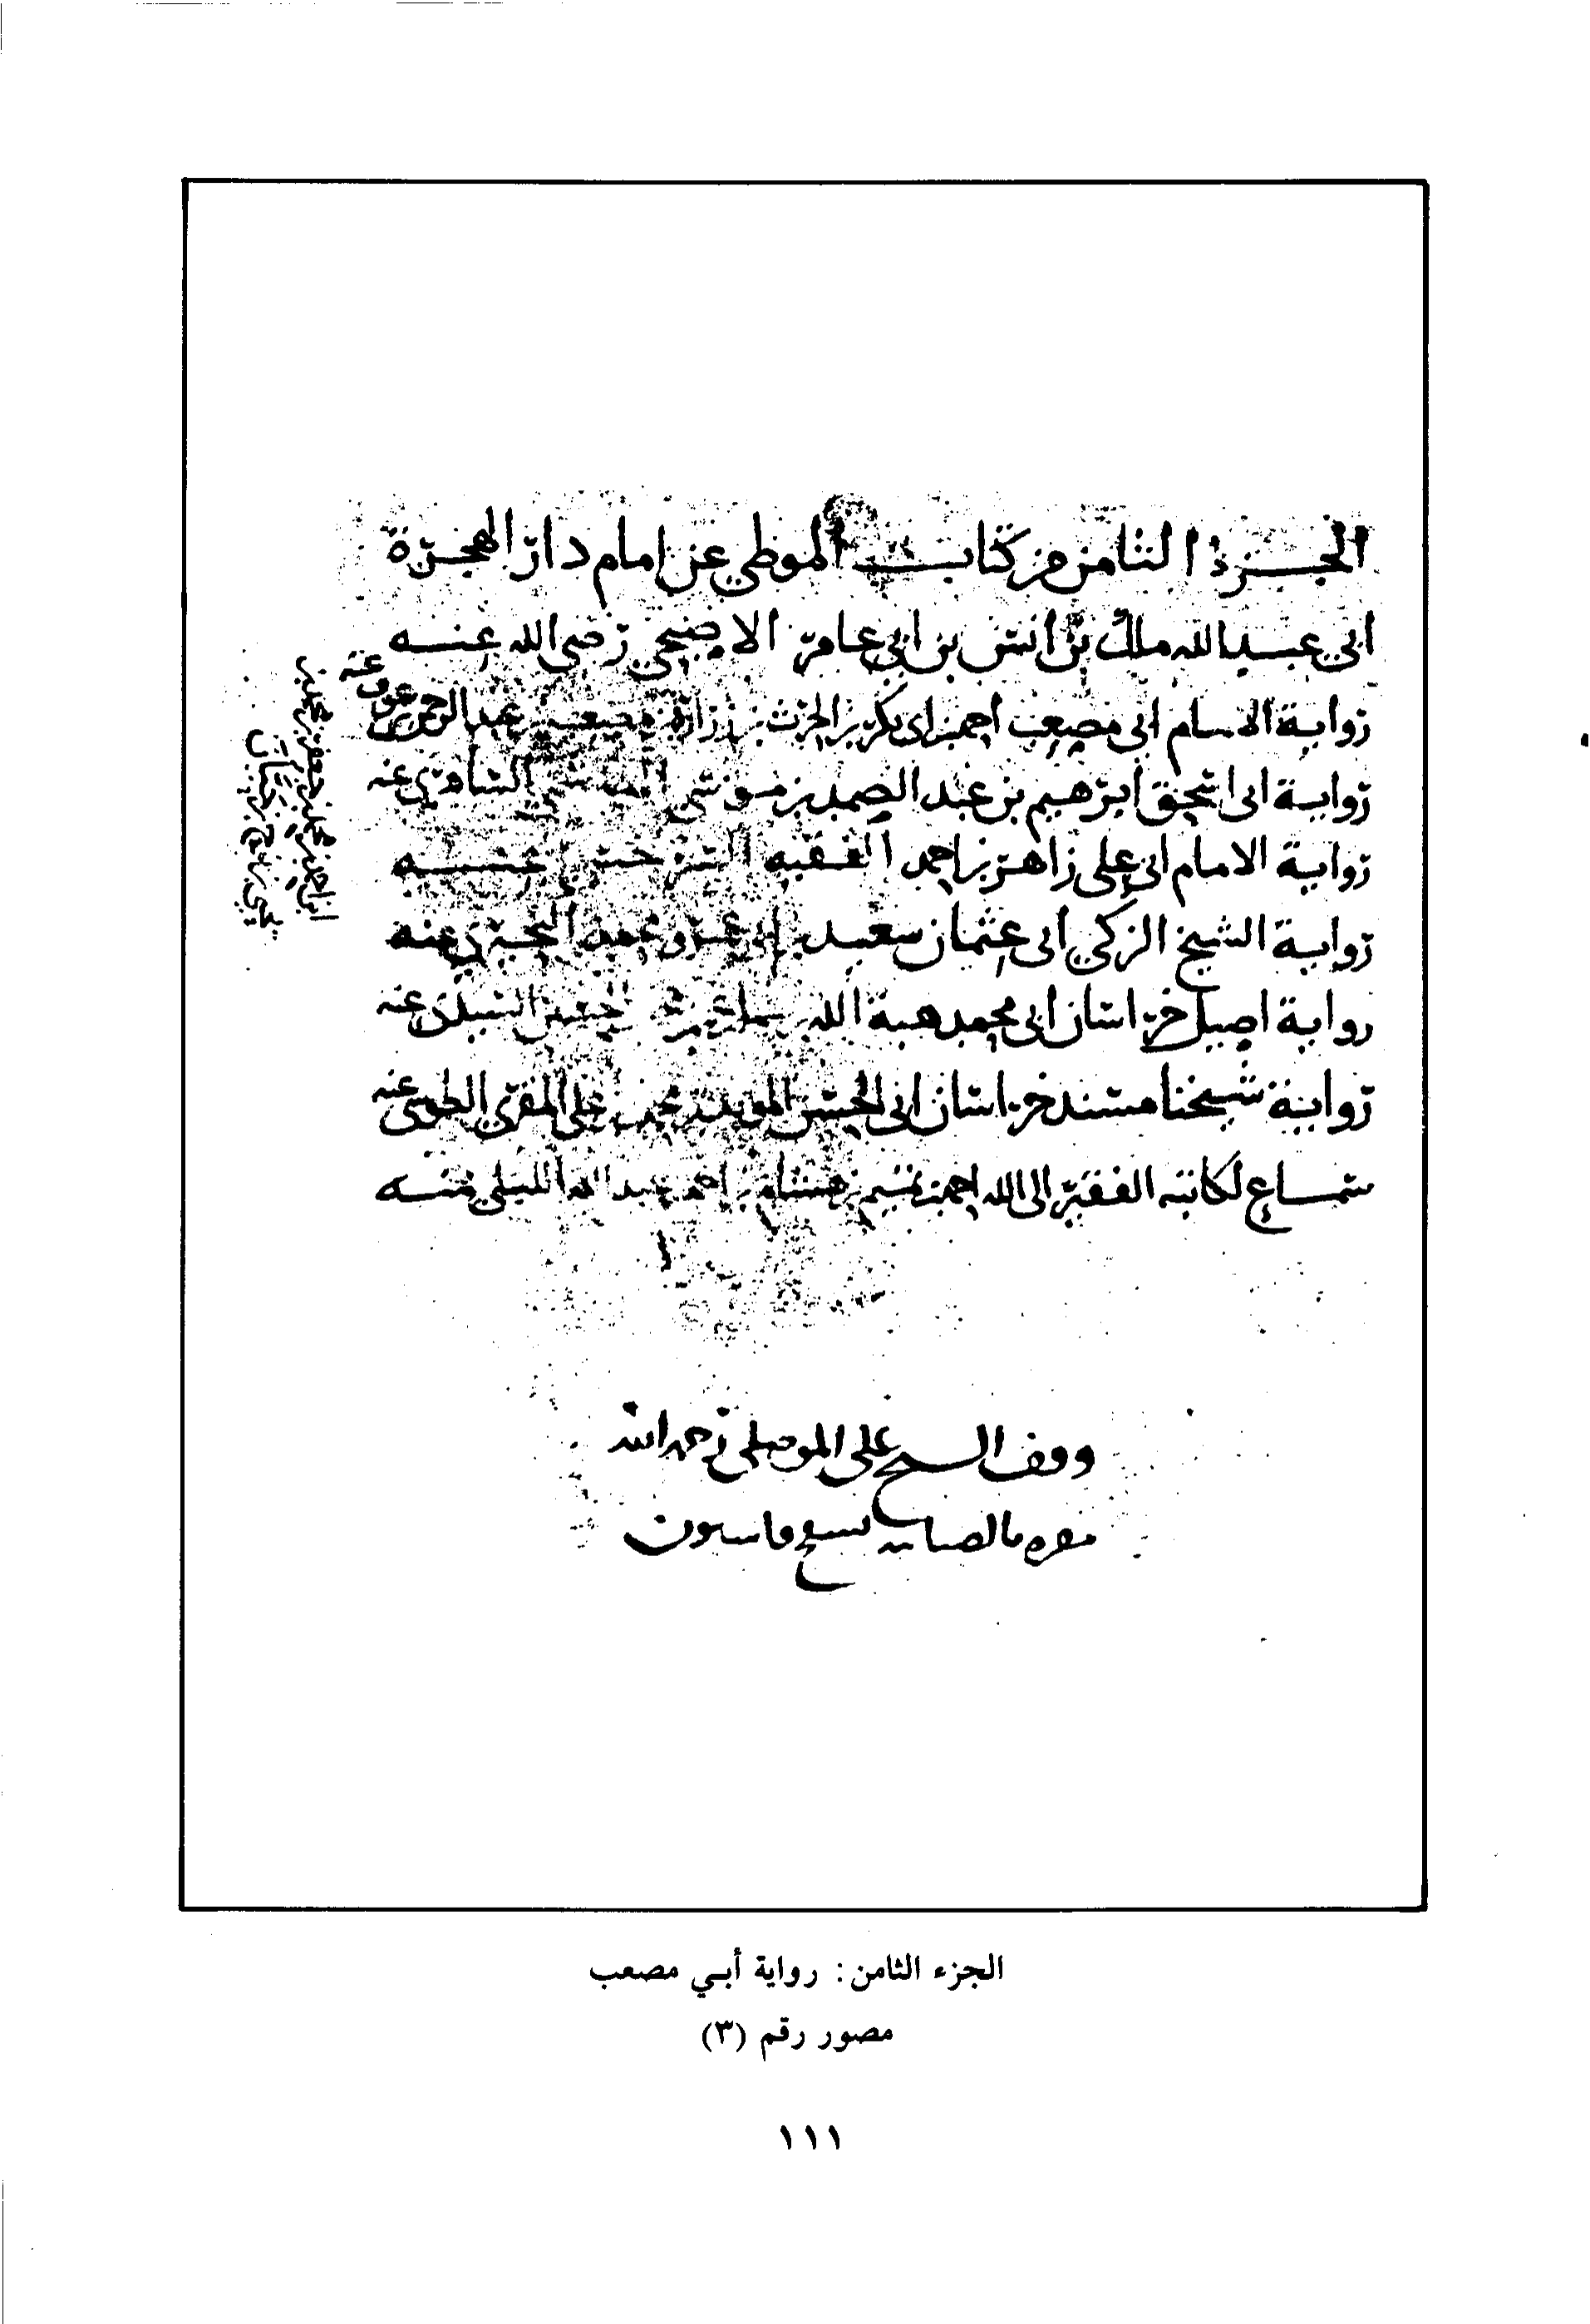 الجزء الثامن من كتاب الموطى عن امام دار الهجرة
ابي عبد الله ملك بن انس بن ابي عامر الاصبحي رضي الله عنه
رواية الامام ابي مصعب احمد بن ابي بكر بن الحرث بن زرارة بن مصعب بن عبد الرحمن بن عوف عنه
رواية ابي اسحق ابرهيم بن عبد الصمد بن موسى الهاشمي السامري عنه
رواية الامام ابي علي زاهر بن احمد الفقيه السرخسي عنه
رواية الشيخ الزكي ابي عثمان سعيد بن ابي عمرو محمد البحيري عنه
بن احمد بن محمد بن جعفر بن محمد بن
بحير بن نوح بن حيان
رواية اصيل خراسان ابي محمد هبة الله بن سهل بن عمر السيدي عنه
رواية شيخنا مسند خراسان ابي الحسن المويد بن محمد بن علي المقرئ الطوسي عنه
سماع لكاتبه الفقير الى الله احمد بن تميم بن هشام بن احمد بن عبد الله اللبلي منه
وقف الشيخ علي الموصلي رحمه الله
مقره بالضيائية بسفح قاسيون
الجزء الثامن: رواية أبي مصعب
مصور رقم (٣)
١١١